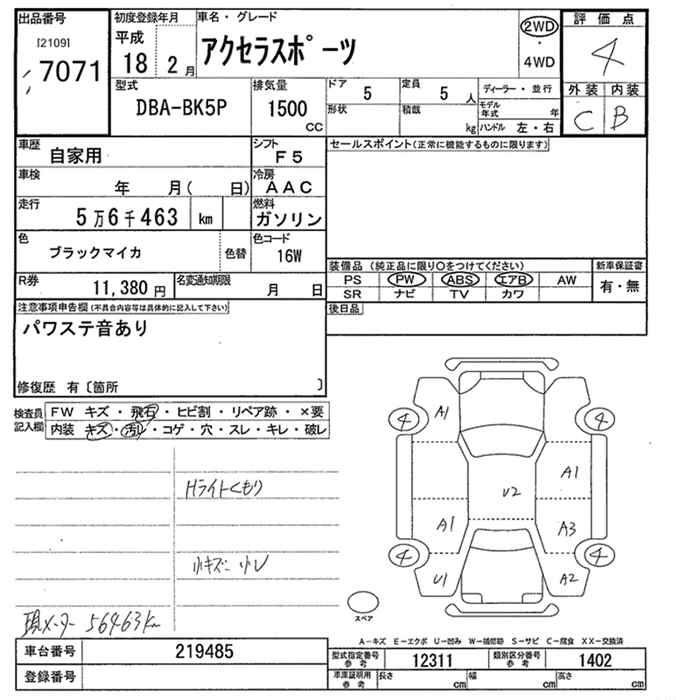 出品番号
[2109]
7071
初度登録年月
平成
18 2月
車名・グレード
アクセラスポーツ
2WD
・
4WD
評価点
4
外装 内装
C B
型式
DBA-BK5P
排気量
1500
CC
ドア 5
定員 5 人
形状
積載 kg
ディーラー・並行
モデル年式 年
ハンドル 左・右
車歴 自家用
シフト F5
セールスポイント(正常に機能するものに限ります)
車検 年 月( 日)
冷房 AAC
走行 5万6千463 km
燃料 ガソリン
色 ブラックマイカ 色替
色コード 16W
R券 11,380円
名変通知期限 月 日
装備品 (純正品に限り〇をつけてください)
新車保証書
PS PW ABS エアB AW
SR ナビ TV カワ
有・無
注意事項申告欄(不具合内容等は具体的に記入して下さい)
後日品
パワステ音あり
修復歴 有〔箇所 〕
検査員記入欄
FW キズ・飛石・ヒビ割・リペア跡・×要
内装 キズ・汚れ・コゲ・穴・スレ・キレ・破レ
Hライトくもり
小キズ 小レ
現メーター 56463km
A1
4 4
A1
U2
A1 A3
4 4
U1 A2
スペア
A-キズ E-エクボ U-凹み W-補修跡 S-サビ C-腐食 XX-交換済
車台番号 219485
型式指定番号 参考 12311
類別区分番号 参考 1402
登録番号
車庫証明用 参考
長さ cm
幅 cm
高さ cm